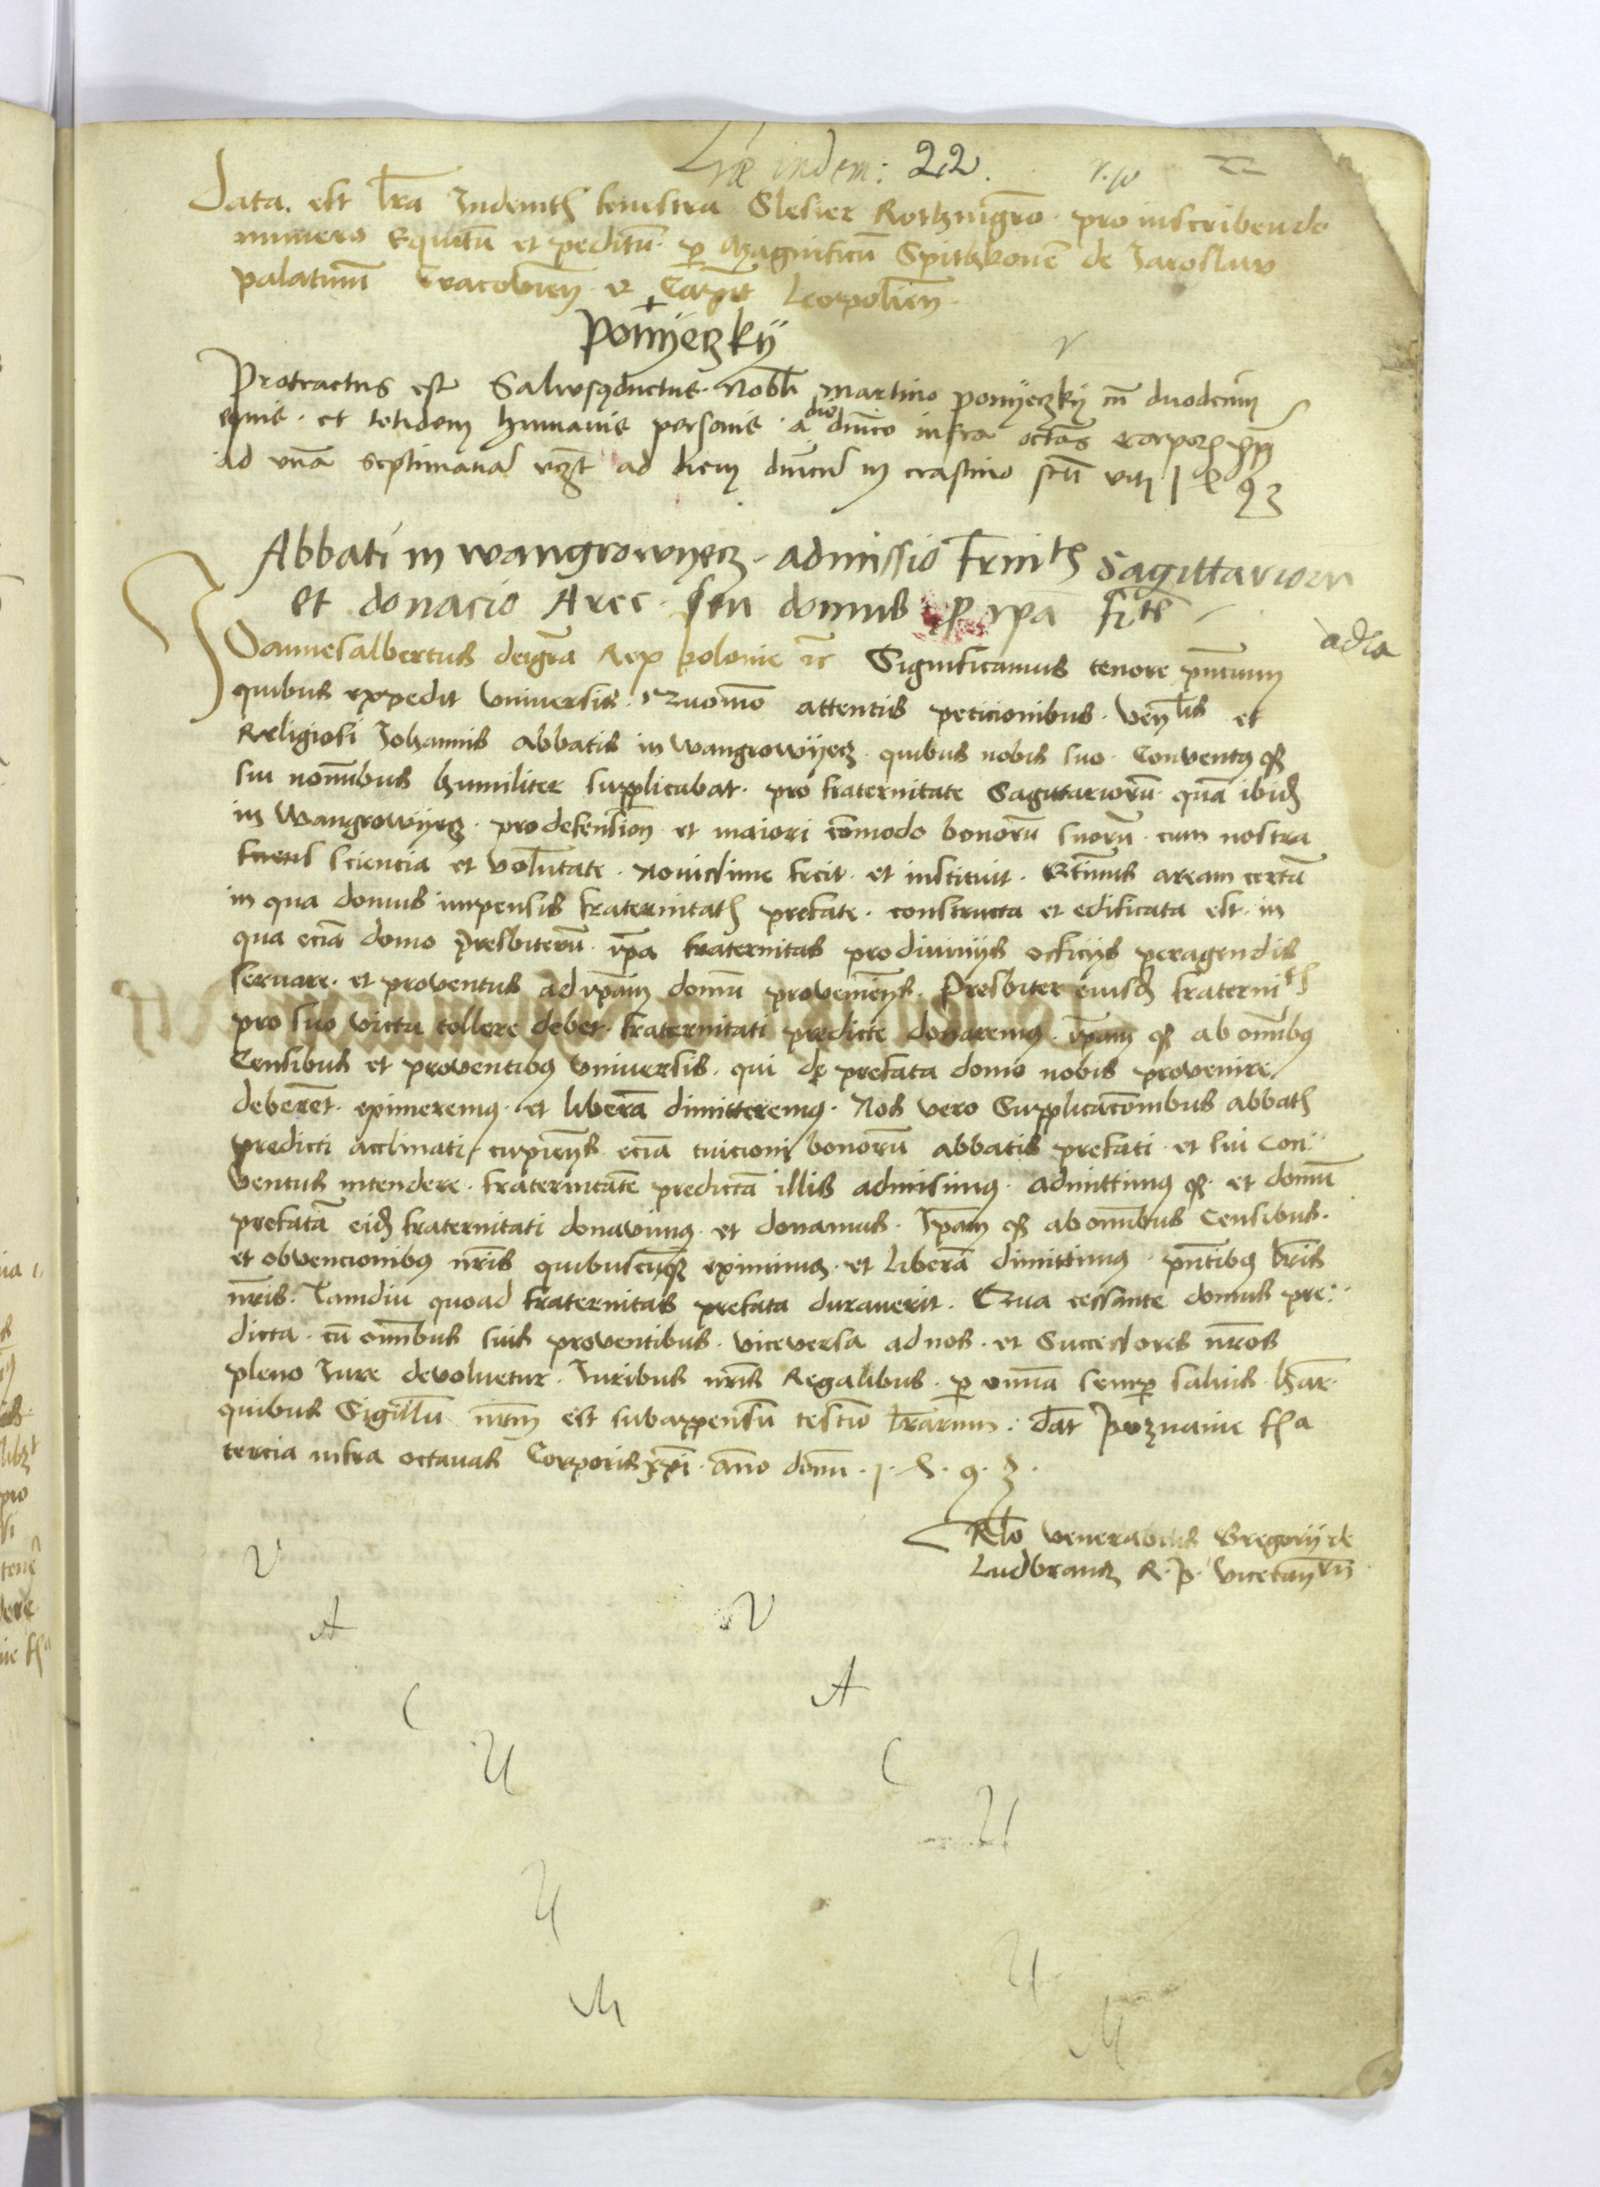 Lræ indem: 22.
Data est lra Indemth fenestra Slesier Rothmgro pro inscribendo
numero Equitu et peditu p Magnificu Spithkone de Jaroslaw
palatinu Cracovien et Leopolien
Ponyeczky
Protractus est Salvusqductus Nobli Martino ponyeczky cu duodecim
equis et totidem humanis personis a die dnico infra octas corporis xpi
ad una septimana vzt ad diem dnicu in crastino scti viti 1 8 9 3
Abbati in wangrowyecz admissio frnitis Sagittarioru
et donacio Aree seu domus p ipa fite
Joannesalbertus deigra Rex polonie zc Significamus tenore pntium
quibus expedit Universis Quomo attentis peticionibus venlis et
Religiosi Johannis abbatis in wangrowyecz quibus nobis suo Conventusq
sui nominibus humiliter supplicabat pro fraternitate Sagittarioru qua ibid
in Wangrowyecz pro defension et maiori comodo bonoru suoru cum nostra
sciencia et voluntate Novissime fecit et instituit aream certa
in qua domus impensis fraternitatis prefate constructa et edificata est in
qua ecia domo Presbiteru ipa fraternitas pro divinijs officijs peragendis
servare et proventus ad ipam domu provenien Presbiter eiusd fraternitis
pro suo victu tollere debet fraternitati predicte donaremus ipamq ab omibus
Censibus et proventibus Universis qui de prefata domo nobis provenire
deberet eximeremus et libera dimitteremus Nos vero Supplicacionibus abbatis
predicti acclinati cupien ecia tuicioni bonoru abbatis prefati et sui Con
ventus intendere fraternitate predicta illis admisimus admittimusq et domu
prefata eid fraternitati donavimus et donamus Ipamq ab omibus Censibus
et obvencionibus nris quibuscuq eximimus et libera dimittimus pntibus lris
nris Tamdiu quoad fraternitas prefata duraverit Qua cessante domus pre
dicta cu omibus suis proventibus viceversa ad nos et Successores nros
pleno Iure devoluetur Iuribus nris Regalibus p omia semp salvis Har
quibus Sigillu nrm est subappensu testio lrarum Dat Poznanie fa
tercia infra octavas Corporis xpi Ano domi 1 8 9 3
Rlo venerabilis Gregorij de
Ludbrancz R P vicecan
V
A
V
C
A
U
C
U
U
U
M
M